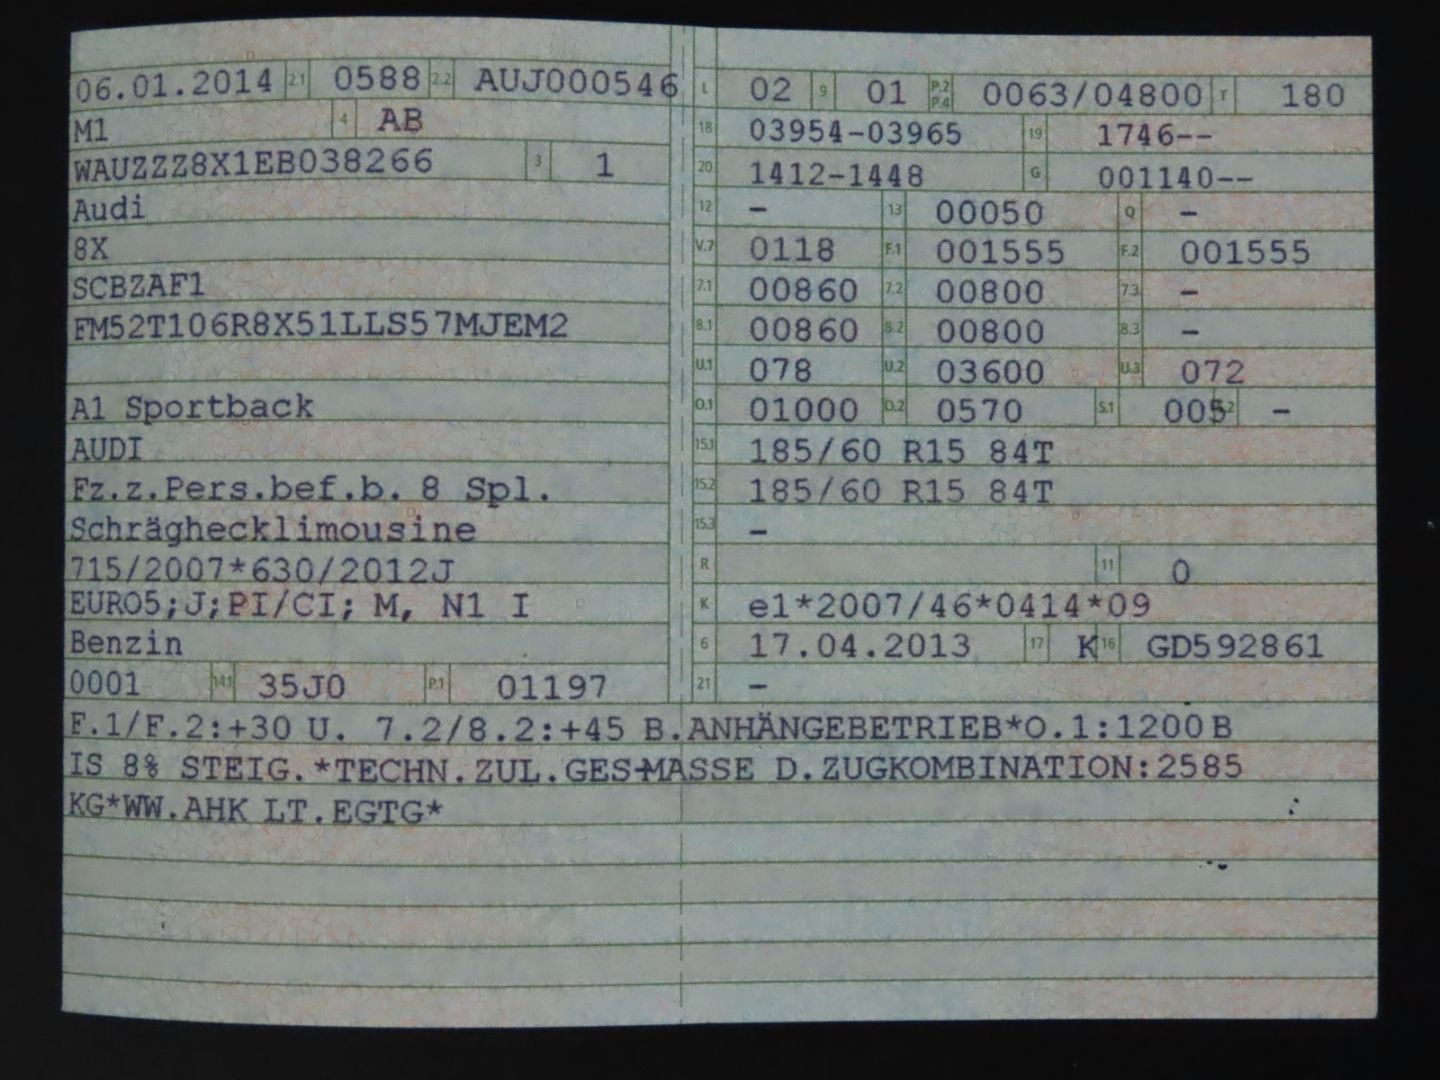 06.01.2014 2.1 0588 2.2 AUJ000546
M1 4 AB
WAUZZZ8X1EB038266 3 1
Audi
8X
SCBZAF1
FM52T106R8X51LLS57MJEM2
A1 Sportback
AUDI
Fz.z.Pers.bef.b. 8 Spl.
Schräghecklimousine
715/2007*630/2012J
EURO5;J;PI/CI; M, N1 I
Benzin
0001 14.1 35J0 P.1 01197
L 02 9 01 P.2 P.4 0063/04800 T 180
18 03954-03965 19 1746--
20 1412-1448 G 001140--
12 - 13 00050 Q -
V.7 0118 F.1 001555 F.2 001555
7.1 00860 7.2 00800 7.3 -
8.1 00860 8.2 00800 8.3 -
U.1 078 U.2 03600 U.3 072
O.1 01000 O.2 0570 S.1 005 S.2 -
15.1 185/60 R15 84T
15.2 185/60 R15 84T
15.3 -
R 11 0
K e1*2007/46*0414*09
6 17.04.2013 17 K 16 GD592861
21 -
F.1/F.2:+30 U. 7.2/8.2:+45 B.ANHÄNGEBETRIEB*O.1:1200 B
IS 8% STEIG.*TECHN.ZUL.GES-MASSE D.ZUGKOMBINATION:2585
KG*WW.AHK LT.EGTG*